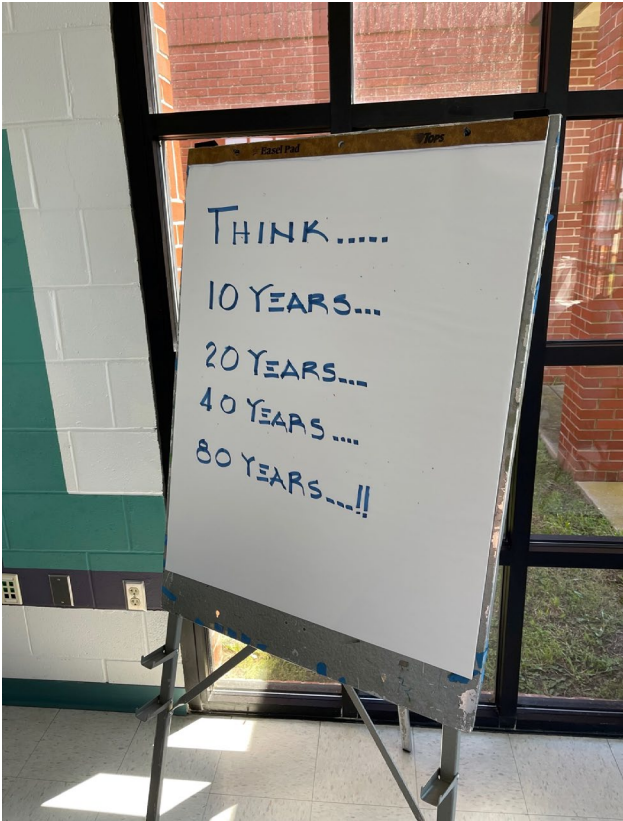 Easel Pad TOPS
THINK.....
10 YEARS...
20 YEARS....
40 YEARS....
80 YEARS....!!